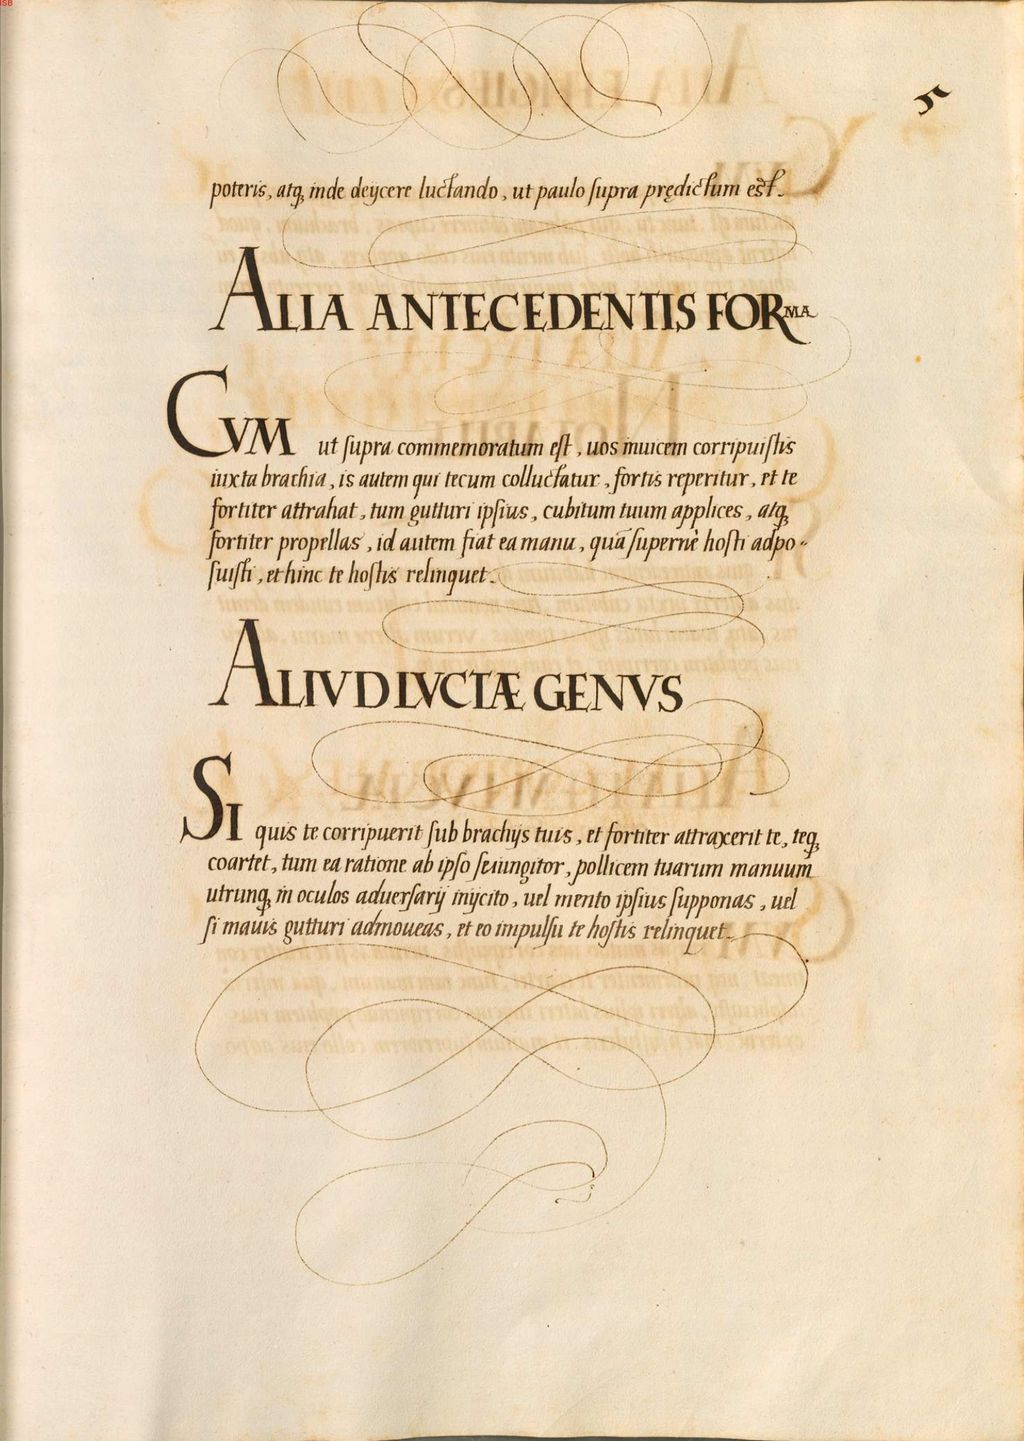 poteris, atq, inde deijcere luctando, ut paulo supra prędictum est.
ALIA ANTECEDENTIS FORMA
CVM ut supra commemoratum est, uos inuicem corripuistis
iuxta brachia, is autem qui tecum colluctatur, fortis reperitur, et te
fortiter attrahat, tum gutturi ipsius, cubitum tuum applices, atq,
fortiter propellas, id autem fiat ea manu, quā supernè hosti adpo-
suisti, et hinc te hostis relinquet.
ALIVD LVCTÆ GENVS
SI quis te corripuerit sub brachijs tuis, et fortiter attraxerit te, teq,
coartet, tum ea ratione ab ipso seiungitor, pollicem tuarum manuum
utrunq, in oculos aduersarij inijcito, uel mento ipsius supponas, uel
si mauis gutturi admoueas, et eo impulsu te hostis relinquet.